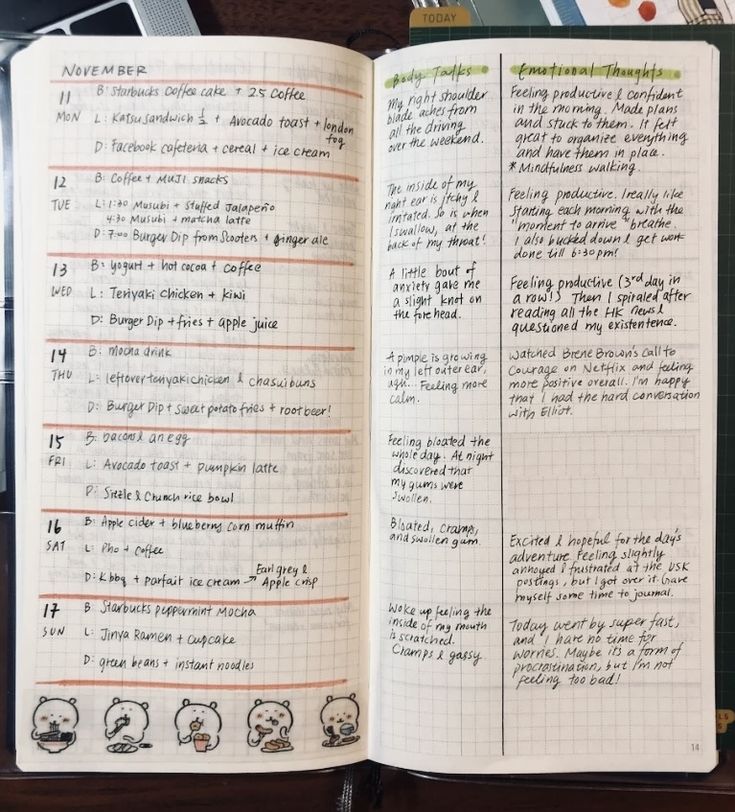 TODAY
NOVEMBER
11
MON
B: Starbucks coffee cake + 25 Coffee
L: Katsu sandwich 1/2 + Avocado toast + london fog
D: Facebook cafeteria + cereal + ice cream
12
TUE
B: Coffee + MUJI snacks
L: 1:30 Musubi + stuffed Jalapeño
4:30 Musubi + matcha latte
D: 7:00 Burger Dip from Scooters + ginger ale
13
WED
B: yogurt + hot cocoa + coffee
L: Teriyaki chicken + kiwi
D: Burger Dip + fries + apple juice
14
THU
B: mocha drink
L: leftover teriyaki chicken & chasui buns
D: Burger Dip + sweet potato fries + root beer!
15
FRI
B: bacon & an egg
L: Avocado toast + pumpkin latte
D: Sizzle & Crunch rice bowl
16
SAT
B: Apple cider + blueberry corn muffin
L: Pho + coffee
D: Kbbq + parfait ice cream → Earl grey &
Apple crisp
17
SUN
B: Starbucks peppermint Mocha
L: Jinya Ramen + cupcake
D: green beans + instant noodles
Body Talks
My right shoulder
blade aches from
all the driving
over the weekend.
The inside of my
right ear is itchy &
irritated. So is when
I swallow, at the
back of my throat!
A little bout of
anxiety gave me
a slight knot on
the forehead.
A pimple is growing
in my left outer ear,
ugh... Feeling more
calm.
Feeling bloated the
whole day. At night
discovered that
my gums were
swollen.
Bloated, cramps,
and swollen gum.
Woke up feeling the
inside of my mouth
is scratched.
Cramps & gassy.
Emotional Thoughts
Feeling productive & confident
in the morning. Made plans
and stuck to them. It felt
great to organize everything
and have them in place.
* Mindfulness walking.
Feeling productive. I really like
starting each morning with the
"moment to arrive" breathe.
I also bucked down & get work
done till 6:30pm!
Feeling productive (3rd day in
a row!) Then I spiraled after
reading all the HK news &
questioned my existentence.
Watched Brene Brown's Call to
Courage on Netflix and feeling
more positive overall. I'm happy
that I had the hard conversation
with Elliot.
Excited & hopeful for the day's
adventure. Feeling slightly
annoyed & frustrated at the USK
postings, but I got over it. Gave
myself some time to journal.
Today went by super fast,
and I have no time for
worries. Maybe it's a form of
procrastination, but I'm not
feeling too bad!
14